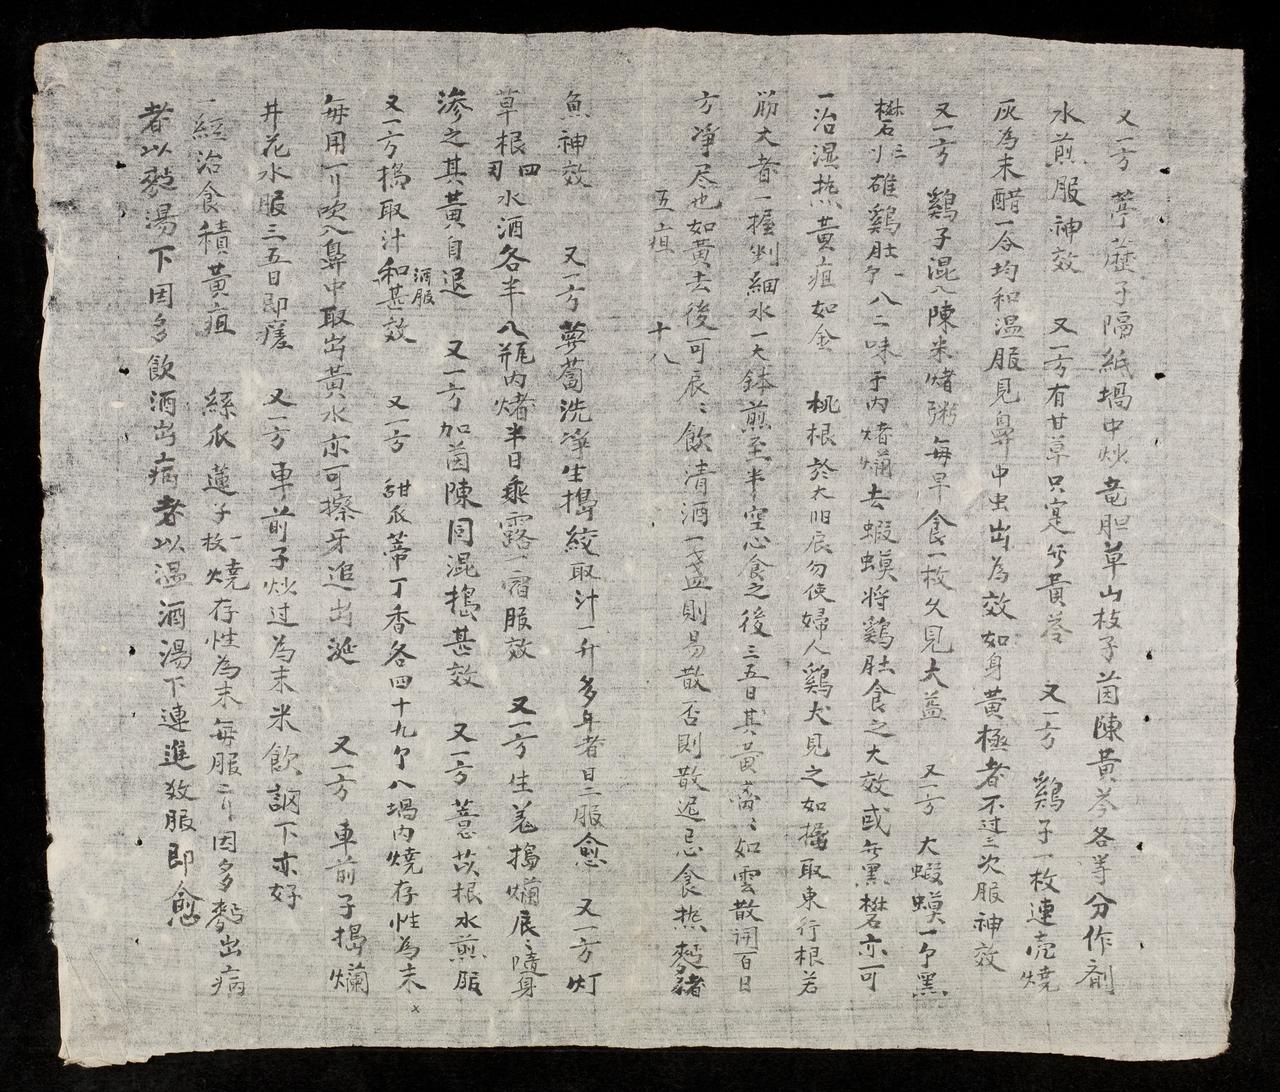 又一方 葶藶子隔紙堝中炒竜胆草山梔子茵陳黃芩各等分作劑
水煎服神效 又一方有甘草只寔 黃芩 又一方 鷄子一枚連壳燒
灰為末醋一合均和温服見鼻中虫出為效如身黃極者不过三次服神效
又一方 鷄子混入陳米焟粥每早食一枚久見大益 又一方 大蝦蟆一个黑
礬三刂雄鷄肚一个八二味于内焟爛去蝦蟆将鷄肚食之大效或無黑礬亦可
一治濕热黃疸如金 桃根於大旧辰勿使婦人鷄犬見之如擣取東行根若
筯大者一握剉細水一大鉢煎至半空心食之後三五日其黃離離如雲散開百日
方凈尽也如黃去後可辰辰飲清酒一盞則易散否則散迟忌食热麵猪
五疸 十八
魚神效 又一方 蔓菁洗凈生搗絞取汁一升多年者日二服愈 又一方 灯
草根四刃水酒各半入瓶内焟半日乘露一宿服效 又一方生羗搗爛辰辰隨身
滲之其黃自退 又一方加茵陳同混搗甚效 又一方 薏苡根水煎服
又一方搗取汁和酒服甚效 又一方 甜瓜蒂丁香各四十九个入堝内燒存性為末
每用一刂吹入鼻中取出黃水亦可擦牙追出涎 又一方 車前子搗爛
井花水服三五日即瘥 又一方 車前子炒过為末米飲調下亦好
一經治食積黃疸 絲瓜蓮子一枚燒存性為末每服二刂因多麵出病
者以麵湯下因多飲酒出病者以温酒湯下連進數服即愈